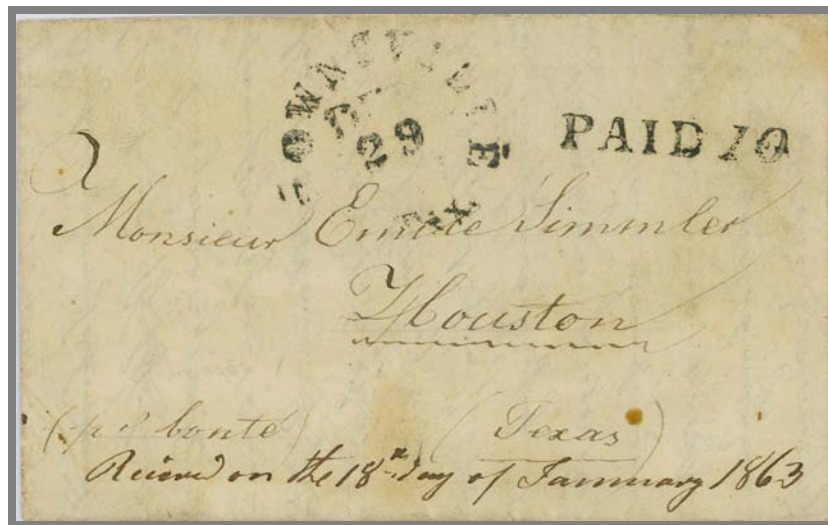 BROWNSVILLE TEX
DE
29
PAID 10
Monsieur Emile Simmler
Houston
(p. bonté) (Texas)
Received on the 18th day of January 1863